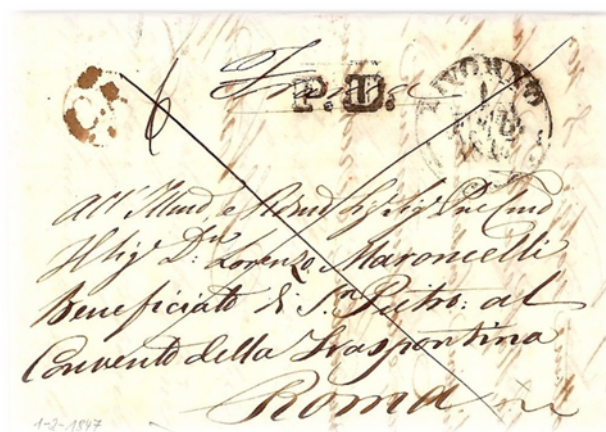 Franca
P.D.
LIVORNO
6
All' Illmo e Revmo Sig. Sig. Pne Cmo
Il Sigr. Dn. Lorenzo Maroncelli
Beneficiato di S.n Pietro: al
Convento della Traspontina
Roma
1-2-1847